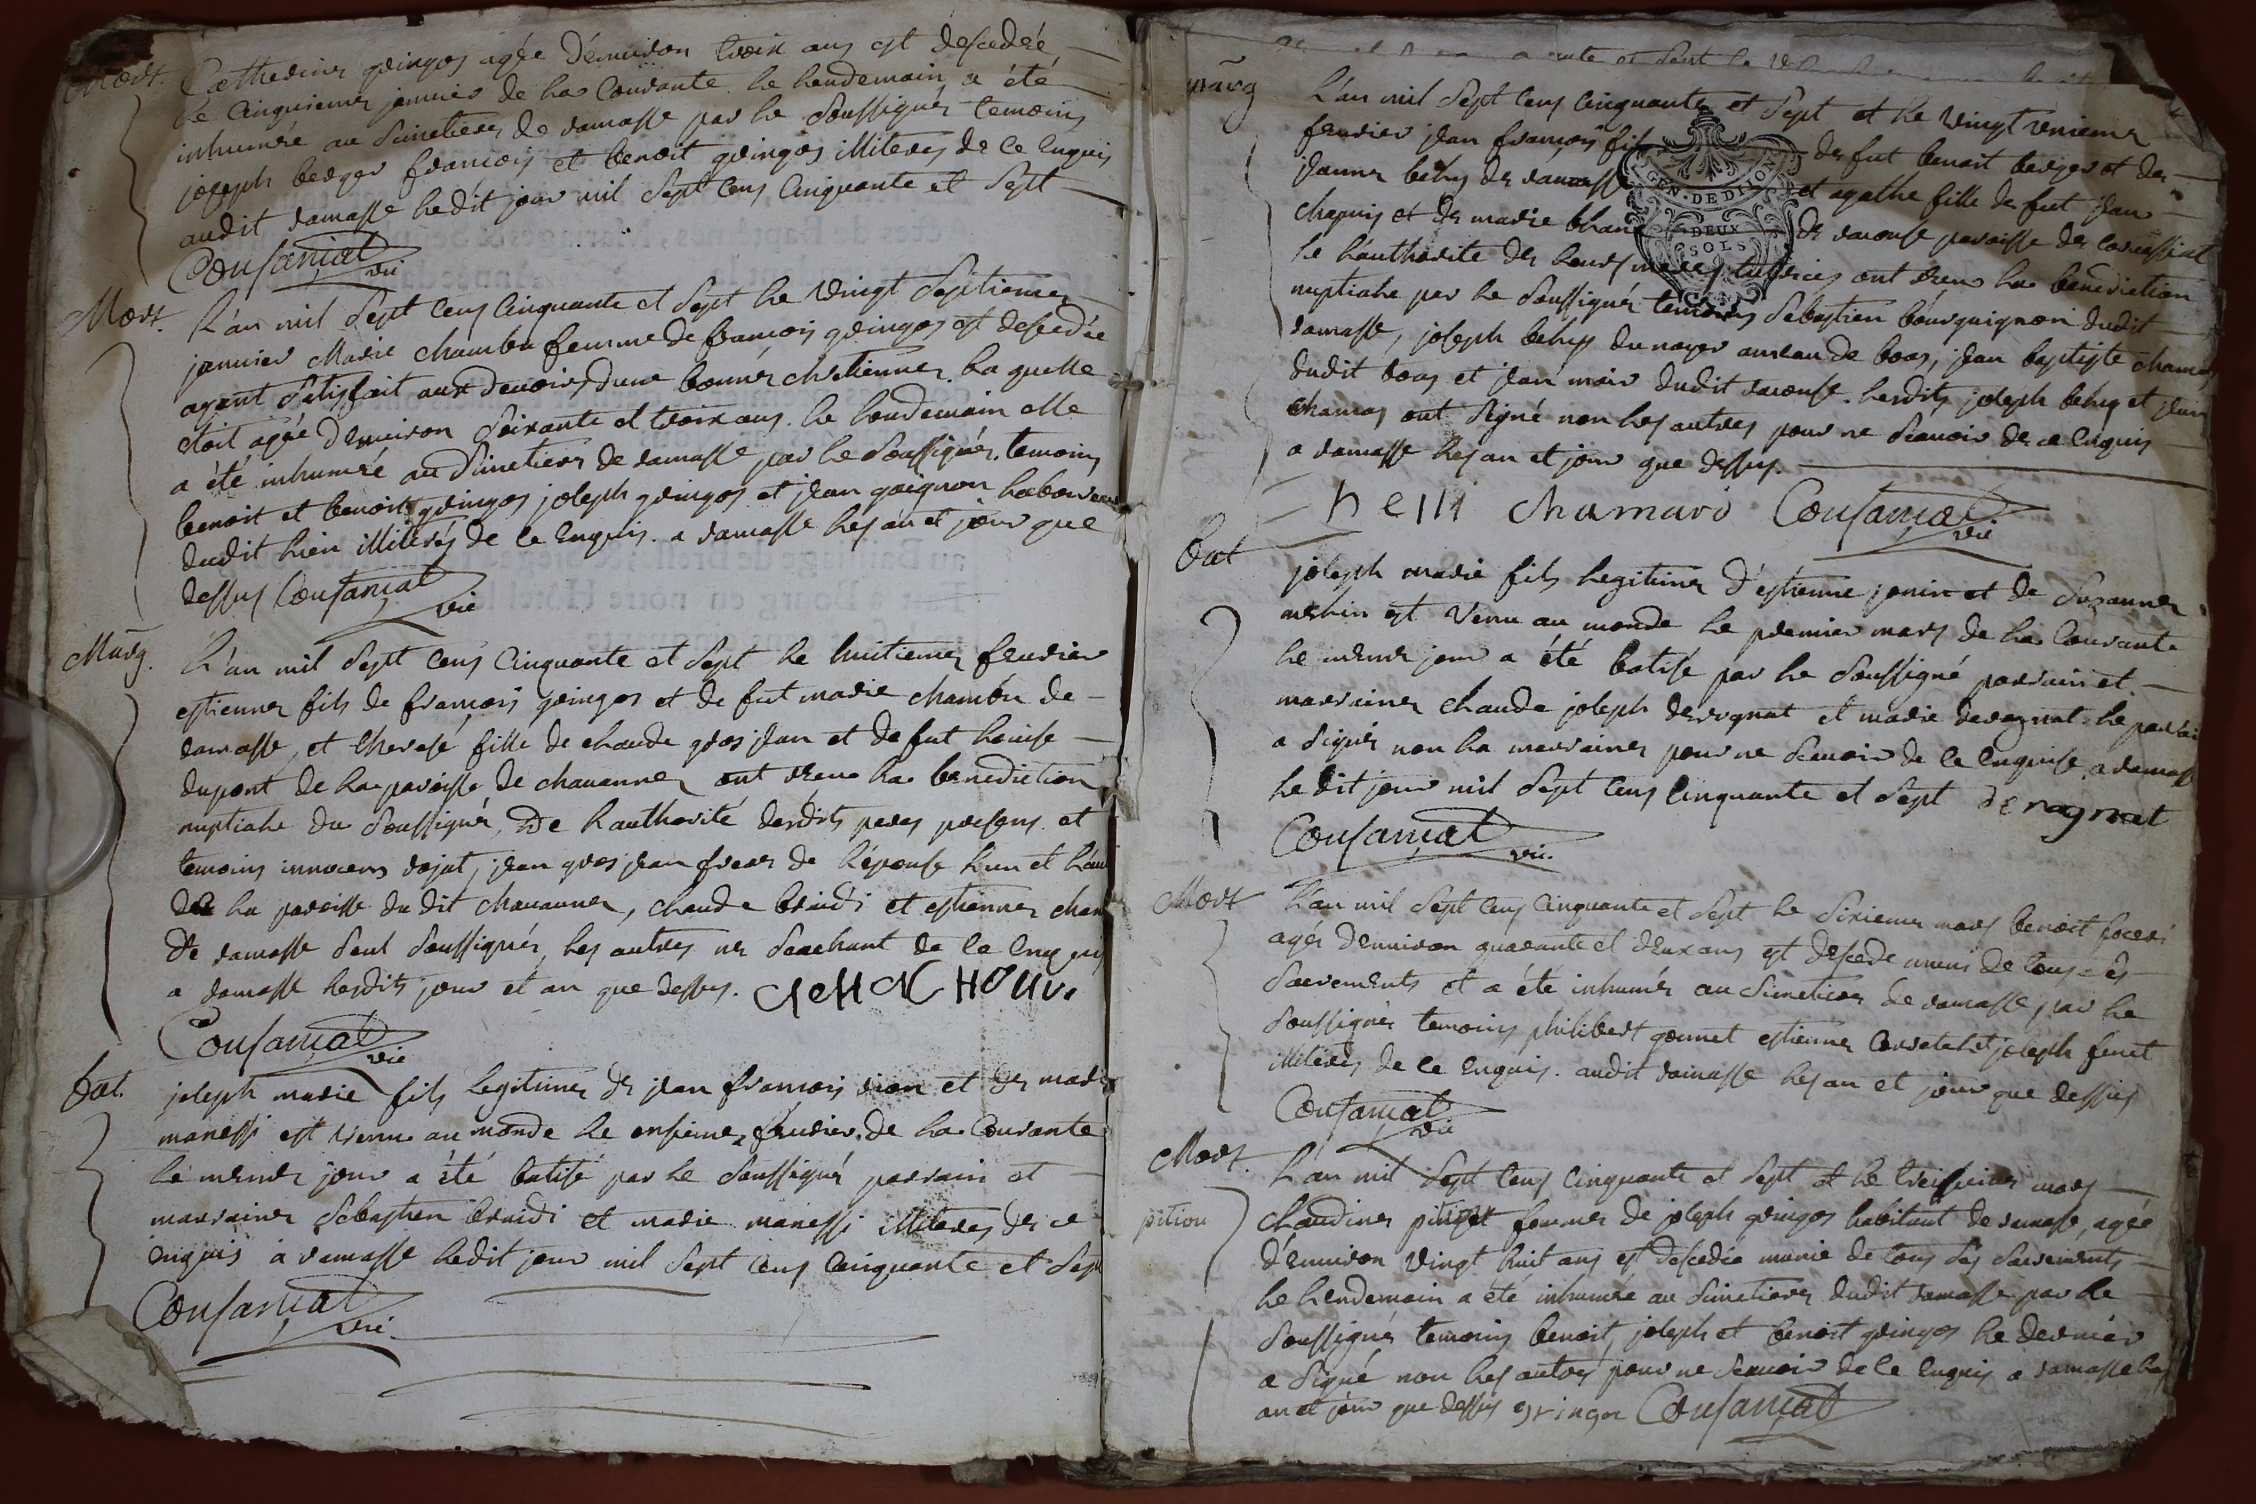 Mort. Catherine gringos agée d'enuiron troix ans est descedéé
le cinquieme januier de la Courante le lendemain a été
inhumée au simetiere de damasse par le soussigné temoins
joseph berger francois et benoit gringos illiteres de ce enquis
audit damasse ledit jour mil sept cens cinquante et sept
Consaniat vic
Mort. L'an mil sept cens cinquante et sept le vingt septieme
januier Marie chambu femme de francois gringos est descedée
ayant satisfait aux deuoirs d'une bonne chretienne. la quelle
etoit agée d'enuiron soixante et troix ans. le lendemain elle
a été inhumée au simetiere de damasse par le soussigné. temoins
benoit et benoit gringos joseph gringos et jean gaignon laboureurs
dudit lieu illiterés de ce enquis. a damasse les an et jour que
dessus Consaniat
vic
Marg. L'an mil sept cens cinquante et sept le huitieme feurier
estienne fils de francois gringos et de fut marie chambu de
damasse, et therese fille de claude gros jean et de fut louise
dupont de la paroisse de chauanne ont receu la benediction
nuptiale du soussigné, de l'authorité desdits peres presens et
temoins innocens rojat, jean gros jean frere de l'epouse l'un et l'au
de la paroisse du dit chauanne, claude braidi et estienne cham
de damasse seul soussigné, les autres ne scachant de ce enquis
a damasse lesdits jour et an que dessus.
Consaniat
vic
bat. joseph marie fils legitime de jean francois vion et de marie
manessi est venu au monde le onsieme feurier de la Courante
le meme jour a été batisé par le soussigné parrain et
marraine sebastien braidi et marie manessi illiteres de ce
enquis à damasse ledit jour mil sept cens cinquante et sept
Consaniat
vic.
marg L'an mil sept cens cinquante et sept et le vingt
feurier jean francois fils de fut benoit berger et de
jeanne bely de damasse et agathe fille de fut jean
chapuis et de marie de paroisse de
de l'authorite de leurs meres tutrices ont receu la benediction
nuptiale par le soussigné temoins sebastien bourguignon dudit
damasse, joseph bely du noyer ameau de boas, jean baptiste
dudit boas et jean dudit lesdits joseph bely et jean
ont signé non les autres pour ne scauoir de ce enquis
a damasse les an et jour que dessus.
chamard Consaniat
vic
bat joseph marie fils legitime d'estienne janin et de Suzanne
est venu au monde le premier mars de la Courante
le meme jour a été batisé par le soussigné parrain et
marraine claude joseph deragnat et marie deragnat le parrain
a signé non la marraine pour ne scauoir de ce enquise a damasse
ledit jour mil sept cens cinquante et sept deragnat
Consaniat
vic.
Mort L'an mil sept cens cinquante et sept le sixieme mars benoit
agé d'enuiron quarante et deux ans est descede muni de tous ses
sacrements et a été inhumé au simetiere de damasse par le
soussigné temoins philibert gonnet estienne et joseph
illiteres de ce enquis. audit damasse les an et jour que dessus
Consaniat
vic
Mort. L'an mil sept cens cinquante et sept et le treisieme mars
pition claudine femme de joseph gringos habitant de damasse, agée
d'enuiron vingt huit ans est descedée munie de tous ses sacrements
le lendemain a été inhumée au simetiere dudit damasse par le
soussigné temoins benoit, joseph et benoit gringos le dernier
a signé non les autres pour ne scauoir de ce enquis a damasse les
an et jour que dessus gringos Consaniat
GEN. DE DIJON
DEUX
SOLS